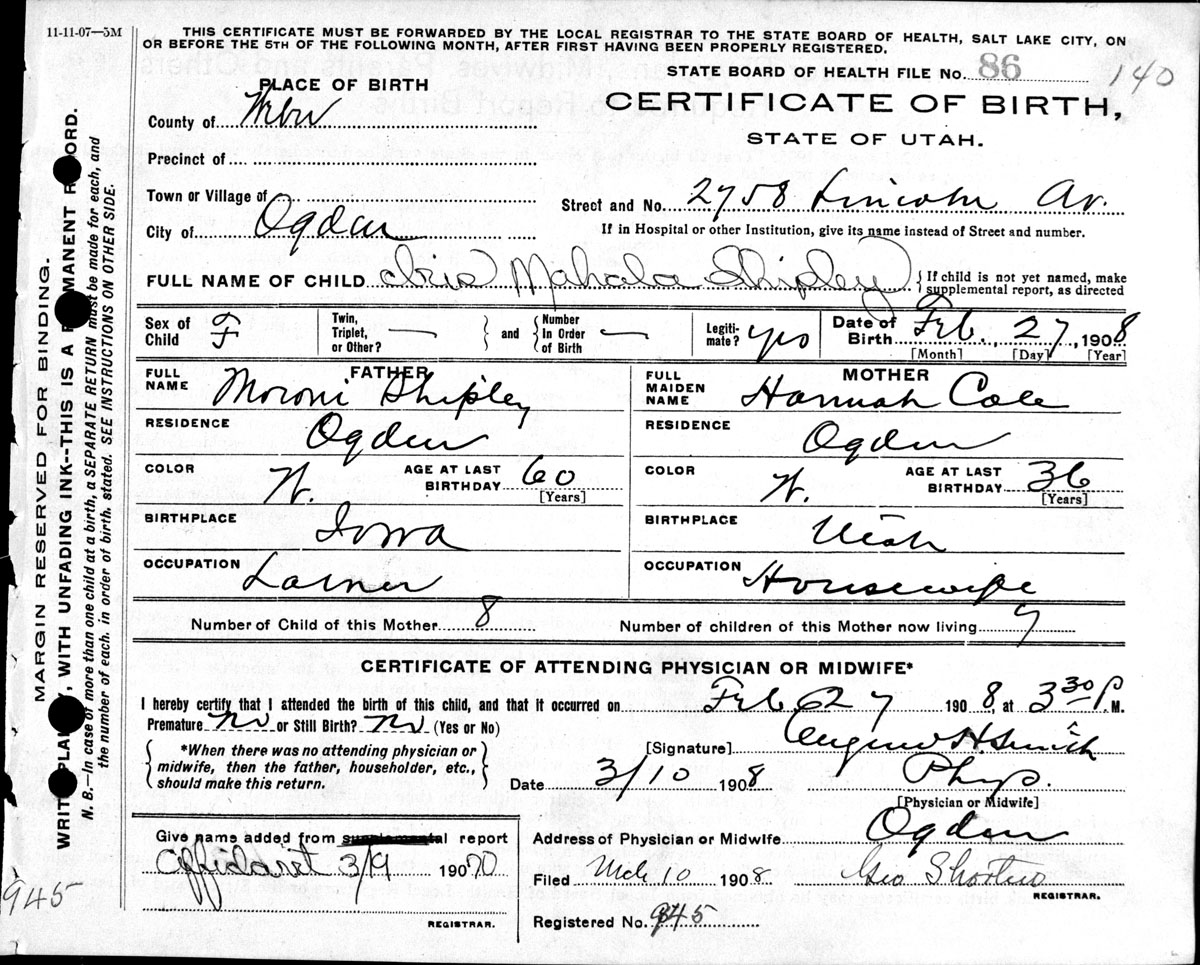 11-11-07—5M
THIS CERTIFICATE MUST BE FORWARDED BY THE LOCAL REGISTRAR TO THE STATE BOARD OF HEALTH, SALT LAKE CITY, ON
OR BEFORE THE 5TH OF THE FOLLOWING MONTH, AFTER FIRST HAVING BEEN PROPERLY REGISTERED.
STATE BOARD OF HEALTH FILE No. 86 140
PLACE OF BIRTH
CERTIFICATE OF BIRTH,
STATE OF UTAH.
County of
Precinct of
Town or Village of
Street and No. 2758 Lincoln Av.
City of Ogden
If in Hospital or other Institution, give its name instead of Street and number.
FULL NAME OF CHILD Iris Mahala Shipley
If child is not yet named, make supplemental report, as directed
Sex of Child F
Twin, Triplet, or Other? —
and
Number In Order of Birth —
Legitimate? yes
Date of Birth Feb. 27, 1908
[Month] [Day] [Year]
FATHER
FULL NAME Moroni Shipley
RESIDENCE Ogden
COLOR W. AGE AT LAST BIRTHDAY 60
[Years]
BIRTHPLACE Iowa
OCCUPATION
MOTHER
FULL MAIDEN NAME Hannah Cole
RESIDENCE Ogden
COLOR W. AGE AT LAST BIRTHDAY 36
[Years]
BIRTHPLACE Utah
OCCUPATION Housewife
Number of Child of this Mother 8
Number of children of this Mother now living
CERTIFICATE OF ATTENDING PHYSICIAN OR MIDWIFE*
I hereby certify that I attended the birth of this child, and that it occurred on Feb 27 1908, at 3 30 P. M.
Premature No or Still Birth? No (Yes or No)
*When there was no attending physician or
midwife, then the father, householder, etc.,
should make this return.
[Signature] H Smith
Date 3/10 1908 Phys.
[Physician or Midwife]
Give name added from supplemental report
Affidavit 3/9 190 70
REGISTRAR.
Address of Physician or Midwife Ogden
Filed Mch 10 1908 Geo Shorten
REGISTRAR.
Registered No. 945
945
MARGIN RESERVED FOR BINDING.
WRITE PLAINLY, WITH UNFADING INK--THIS IS A PERMANENT RECORD.
N. B.—In case of more than one child at a birth, a SEPARATE RETURN must be made for each, and
the number of each. in order of birth. stated. SEE INSTRUCTIONS ON OTHER SIDE.